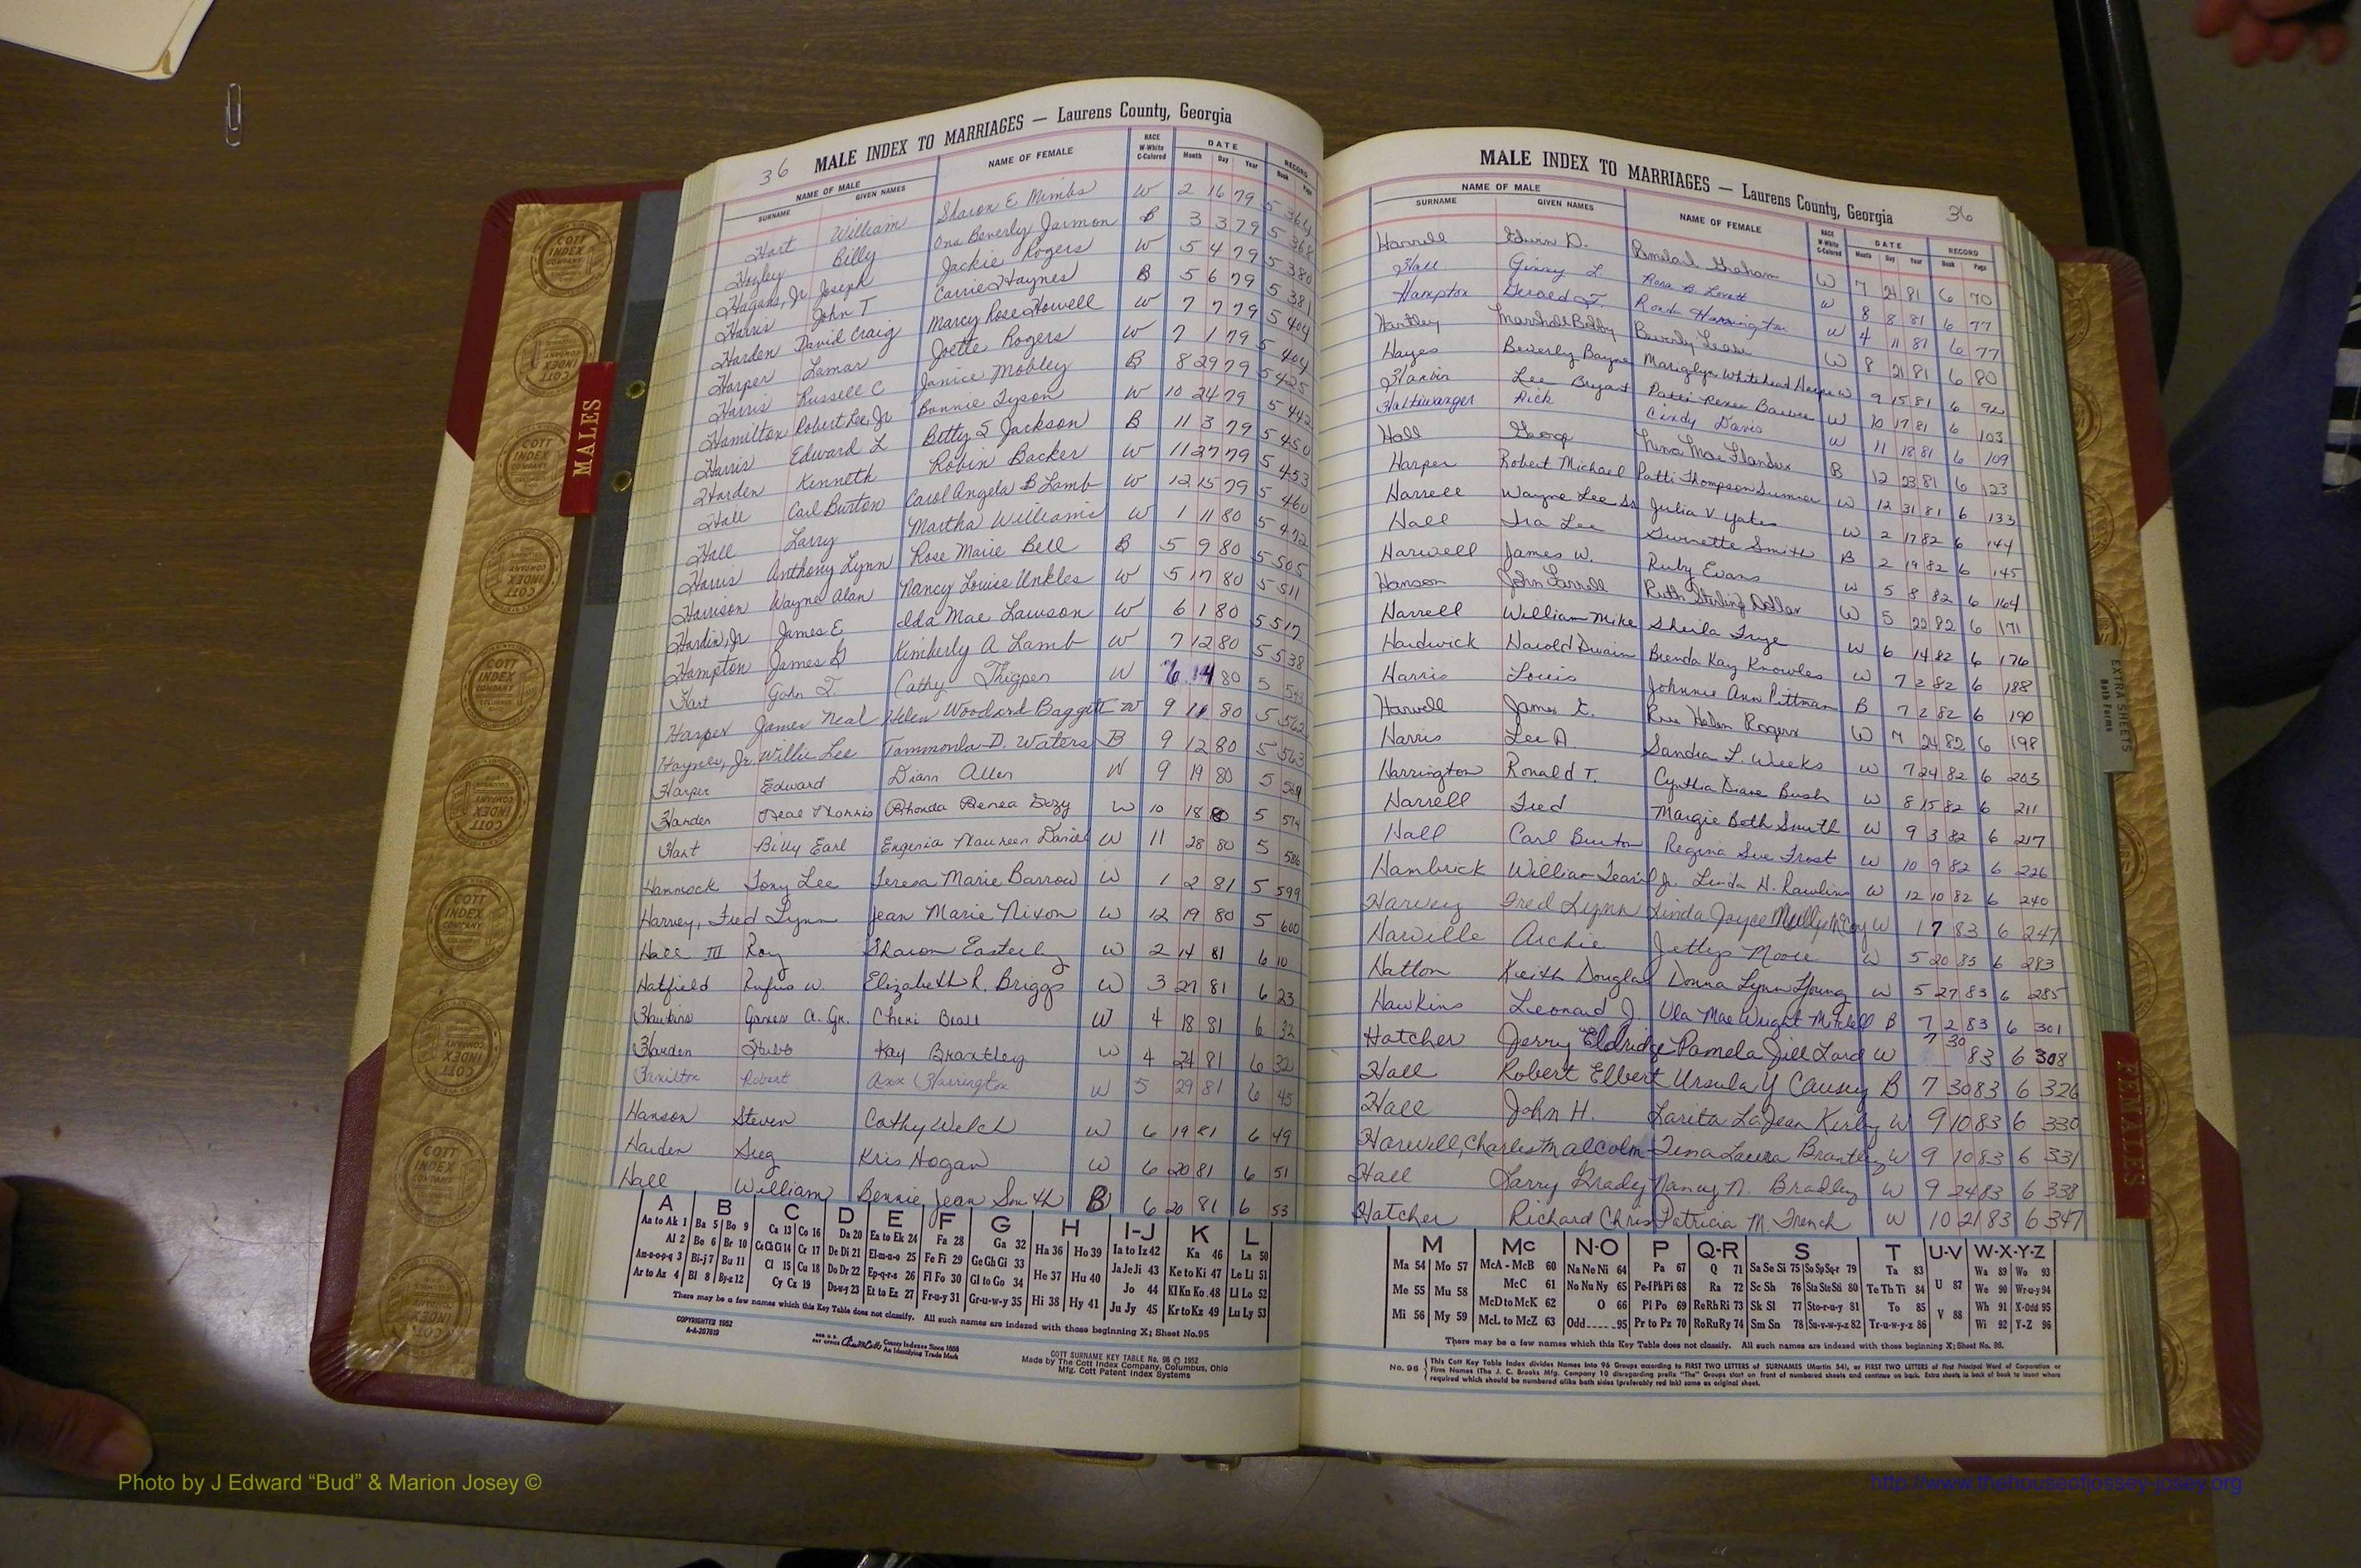 36 MALE INDEX TO MARRIAGES — Laurens County, Georgia
NAME OF MALE NAME OF FEMALE RACE W-White C-Colored DATE RECORD
SURNAME GIVEN NAMES Month Day Year Book Page
Hart William Sharon E Mimbs W 2 16 79 5 364
Billy Ona Beverly Jarmon B 3 3 79 5 368
Hagans, Jr Joseph Jackie Rogers W 5 4 79 5 380
Harris John T Carrie Haynes B 5 6 79 5 381
Harden David Craig Marcy Rose Howell W 7 7 79 5 404
Harper Lamar Joette Rogers W 7 1 79 5 404
Harris Russell C Janice Mobley B 8 29 79 5 425
Hamilton Robert Lee, Jr Bonnie Tyson W 10 24 79 5 442
Harris Edward L Betty S Jackson B 11 3 79 5 450
Harden Kenneth Robin Backer W 11 27 79 5 453
Hall Carl Burton Carol Angela B Lamb W 12 15 79 5 460
Hall Larry Martha Williams W 1 11 80 5 472
Harris Anthony Lynn Rose Marie Bell B 5 9 80 5 505
Harrison Wayne Alan Nancy Louise Unkles W 5 17 80 5 511
Hardin, Jr James E Ida Mae Lawson W 6 1 80 5 517
Hampton James D Kimberly A Lamb W 7 12 80 5 538
Hart John T. Cathy Thigpen W 6 14 80 5
Harper James Neal Helen Woodard Baggett W 9 11 80 5 562
Haynes, Jr. Willie Lee Tammonla D. Waters B 9 12 80 5 563
Harper Edward Diann Allen W 9 19 80 5 564
Harden Neal Morris Rhonda Renea W 10 18 80 5 574
Hart Billy Earl Eugenia Maureen Daniel W 11 28 80 5 586
Hannock Tony Lee Teresa Marie Barrow W 1 2 81 5 599
Harvey, Fred Lynn Jean Marie Nixon W 12 19 80 5 600
Hall III Roy Sharon Easterly W 2 14 81 6 10
Hatfield Rufus W. Elizabeth R. Briggs W 3 27 81 6 23
Hawkins James A. Jr. Cheri Beall W 4 18 81 6 32
Harden Kay Brantley W 4 24 81 6 32
Hamilton Robert Ann Harrington W 5 29 81 6 45
Hanson Steven Cathy Welch W 6 19 81 6 49
Harden Kris Hogan W 6 20 81 6 51
Hall William Bennie Jean Smith B 6 20 81 6 53
A B C D E F G H I-J K L
Aa to Ak 1 Ba 5 Bo 9 Ca 13 Co 16 Da 20 Ea to Ek 24 Fa 28 Ga 32 Ha 36 Ho 39 Ia to Iz 42 Ka 46 La 50
Al 2 Be 6 Br 10 Ce Ch Ci 14 Cr 17 De Di 21 El-m-n-o 25 Fe Fi 29 Ge Gh Gi 33 He 37 Hu 40 Ja Je Ji 43 Ke to Ki 47 Le Li 51
Am-n-o-p-q 3 Bi-j 7 Bu 11 Cl 15 Cu 18 Do Dr 22 Ep-q-r-s 26 Fl Fo 30 Gl to Go 34 Hi 38 Hy 41 Jo 44 Kl Kn Ko 48 Ll Lo 52
Ar to Az 4 Bl 8 By-z 12 Cy Cz 19 Du-w-y 23 Et to Ez 27 Fr-u-y 31 Gr-u-w-y 35 Ju Jy 45 Kr to Kz 49 Lu Ly 53
There may be a few names which this Key Table does not classify. All such names are indexed with those beginning X; Sheet No. 95
COPYRIGHTED 1952
A-A-207619
County Indexes Since 1888
An Identifying Trade Mark
COTT SURNAME KEY TABLE No. 96 © 1952
Made by The Cott Index Company, Columbus, Ohio
Mfg. Cott Patent Index Systems
MALE INDEX TO MARRIAGES — Laurens County, Georgia 36
NAME OF MALE NAME OF FEMALE RACE W-White C-Colored DATE RECORD
SURNAME GIVEN NAMES Month Day Year Book Page
Harrell Edwin D. Graham W 7 21 81 6 70
Hall Ginny L. Rosa B. Lovett W 8 8 81 6 77
Hampton Gerald T. Ronda Harrington W 4 11 81 6 77
Hartley Marshall Bobby Beverly Lease W 8 21 81 6 80
Hayes Beverly Bayne Marialyn Whitehead W 9 15 81 6 92
Harbin Lee Bryant Patti Renee W 10 17 81 6 103
Haltiwanger Rick Cindy Davis W 11 18 81 6 109
Hall George Lena Mae Flanders B 12 23 81 6 123
Harper Robert Michael Patti Thompson Sumner W 12 31 81 6 133
Harrell Wayne Lee Sr Julia V Yates W 2 17 82 6 144
Hall Ira Lee Smith B 2 19 82 6 145
Harwell James W. Ruby Evans W 5 8 82 6 164
Hanson John Farrell Ruth Sterling Dollar W 5 22 82 6 171
Harrell William Mike Sheila Frye W 6 14 82 6 176
Hardwick Harold Dwain Brenda Kay Knowles W 7 2 82 6 188
Harris Louis Johnnie Ann Pittman B 7 2 82 6 190
Harvell James E. Rue Helen Rogers W 7 24 82 6 198
Harris Lee A. Sandra L. Weeks W 7 24 82 6 203
Harrington Ronald T. Cynthia Diane Bush W 8 15 82 6 211
Harrell Fred Margie Beth Smith W 9 3 82 6 217
Hall Carl Burton Regina Sue Frost W 10 9 82 6 226
Hambrick William Jr. Linda H. Rawlins W 12 10 82 6 240
Harvey Fred Lynn Linda Joyce Mullis McCoy W 1 7 83 6 247
Harville Archie Jettys Moore W 5 20 83 6 283
Hatton Keith Douglas Donna Lynn Young W 5 27 83 6 285
Hawkins Leonard J. Ula Mae Wright Mitchell B 7 2 83 6 301
Hatcher Jerry Eldridge Pamela Jill Lord W 7 30 83 6 308
Hall Robert Elbert Ursula Y Causey B 7 30 83 6 326
Hall John H. Larita LaJean Kirby W 9 10 83 6 330
Harwell, Charles Malcolm Tena Laura Brantley W 9 10 83 6 331
Hall Larry Grady Nancy N. Bradley W 9 24 83 6 338
Hatcher Richard Chris Patricia M. French W 10 21 83 6 347
M Mc N-O P Q-R S T U-V W-X-Y-Z
Ma 54 Mo 57 McA - McB 60 Na Ne Ni 64 Pa 67 Q 71 Sa Se Si 75 So Sp Sq-r 79 Ta 83 U 87 Wa 89 Wo 93
Me 55 Mu 58 McC 61 No Nu Ny 65 Pe-f Ph Pi 68 Ra 72 Sc Sh 76 Sta Ste Sti 80 Te Th Ti 84 We 90 Wr-u-y 94
Mi 56 My 59 McD to McK 62 O 66 Pl Po 69 Re Rh Ri 73 Sk Sl 77 Sto-r-u-y 81 To 85 V 88 Wh 91 X-Odd 95
McL to McZ 63 Odd-----95 Pr to Pz 70 Ro Ru Ry 74 Sm Sn 78 Su-v-w-y-z 82 Tr-u-w-y-z 86 Wi 92 Y-Z 96
There may be a few names which this Key Table does not classify. All such names are indexed with those beginning X; Sheet No. 95.
No. 96 This Cott Key Table Index divides Names into 96 Groups according to FIRST TWO LETTERS of SURNAMES (Martin 54), or FIRST TWO LETTERS of First Principal Word of Corporation or
Firm Names (The J. C. Brooks Mfg. Company 10 disregarding prefix "The" Groups start on front of numbered sheets and continue on back. Extra sheets in back of book to insert where
required which should be numbered alike both sides (preferably red ink) same as original sheet.
MALES
FEMALES
EXTRA SHEETS
Both Forms
COTT INDEX COMPANY
Photo by J Edward “Bud” & Marion Josey ©
http://www.thehouseofjossey-josey.org